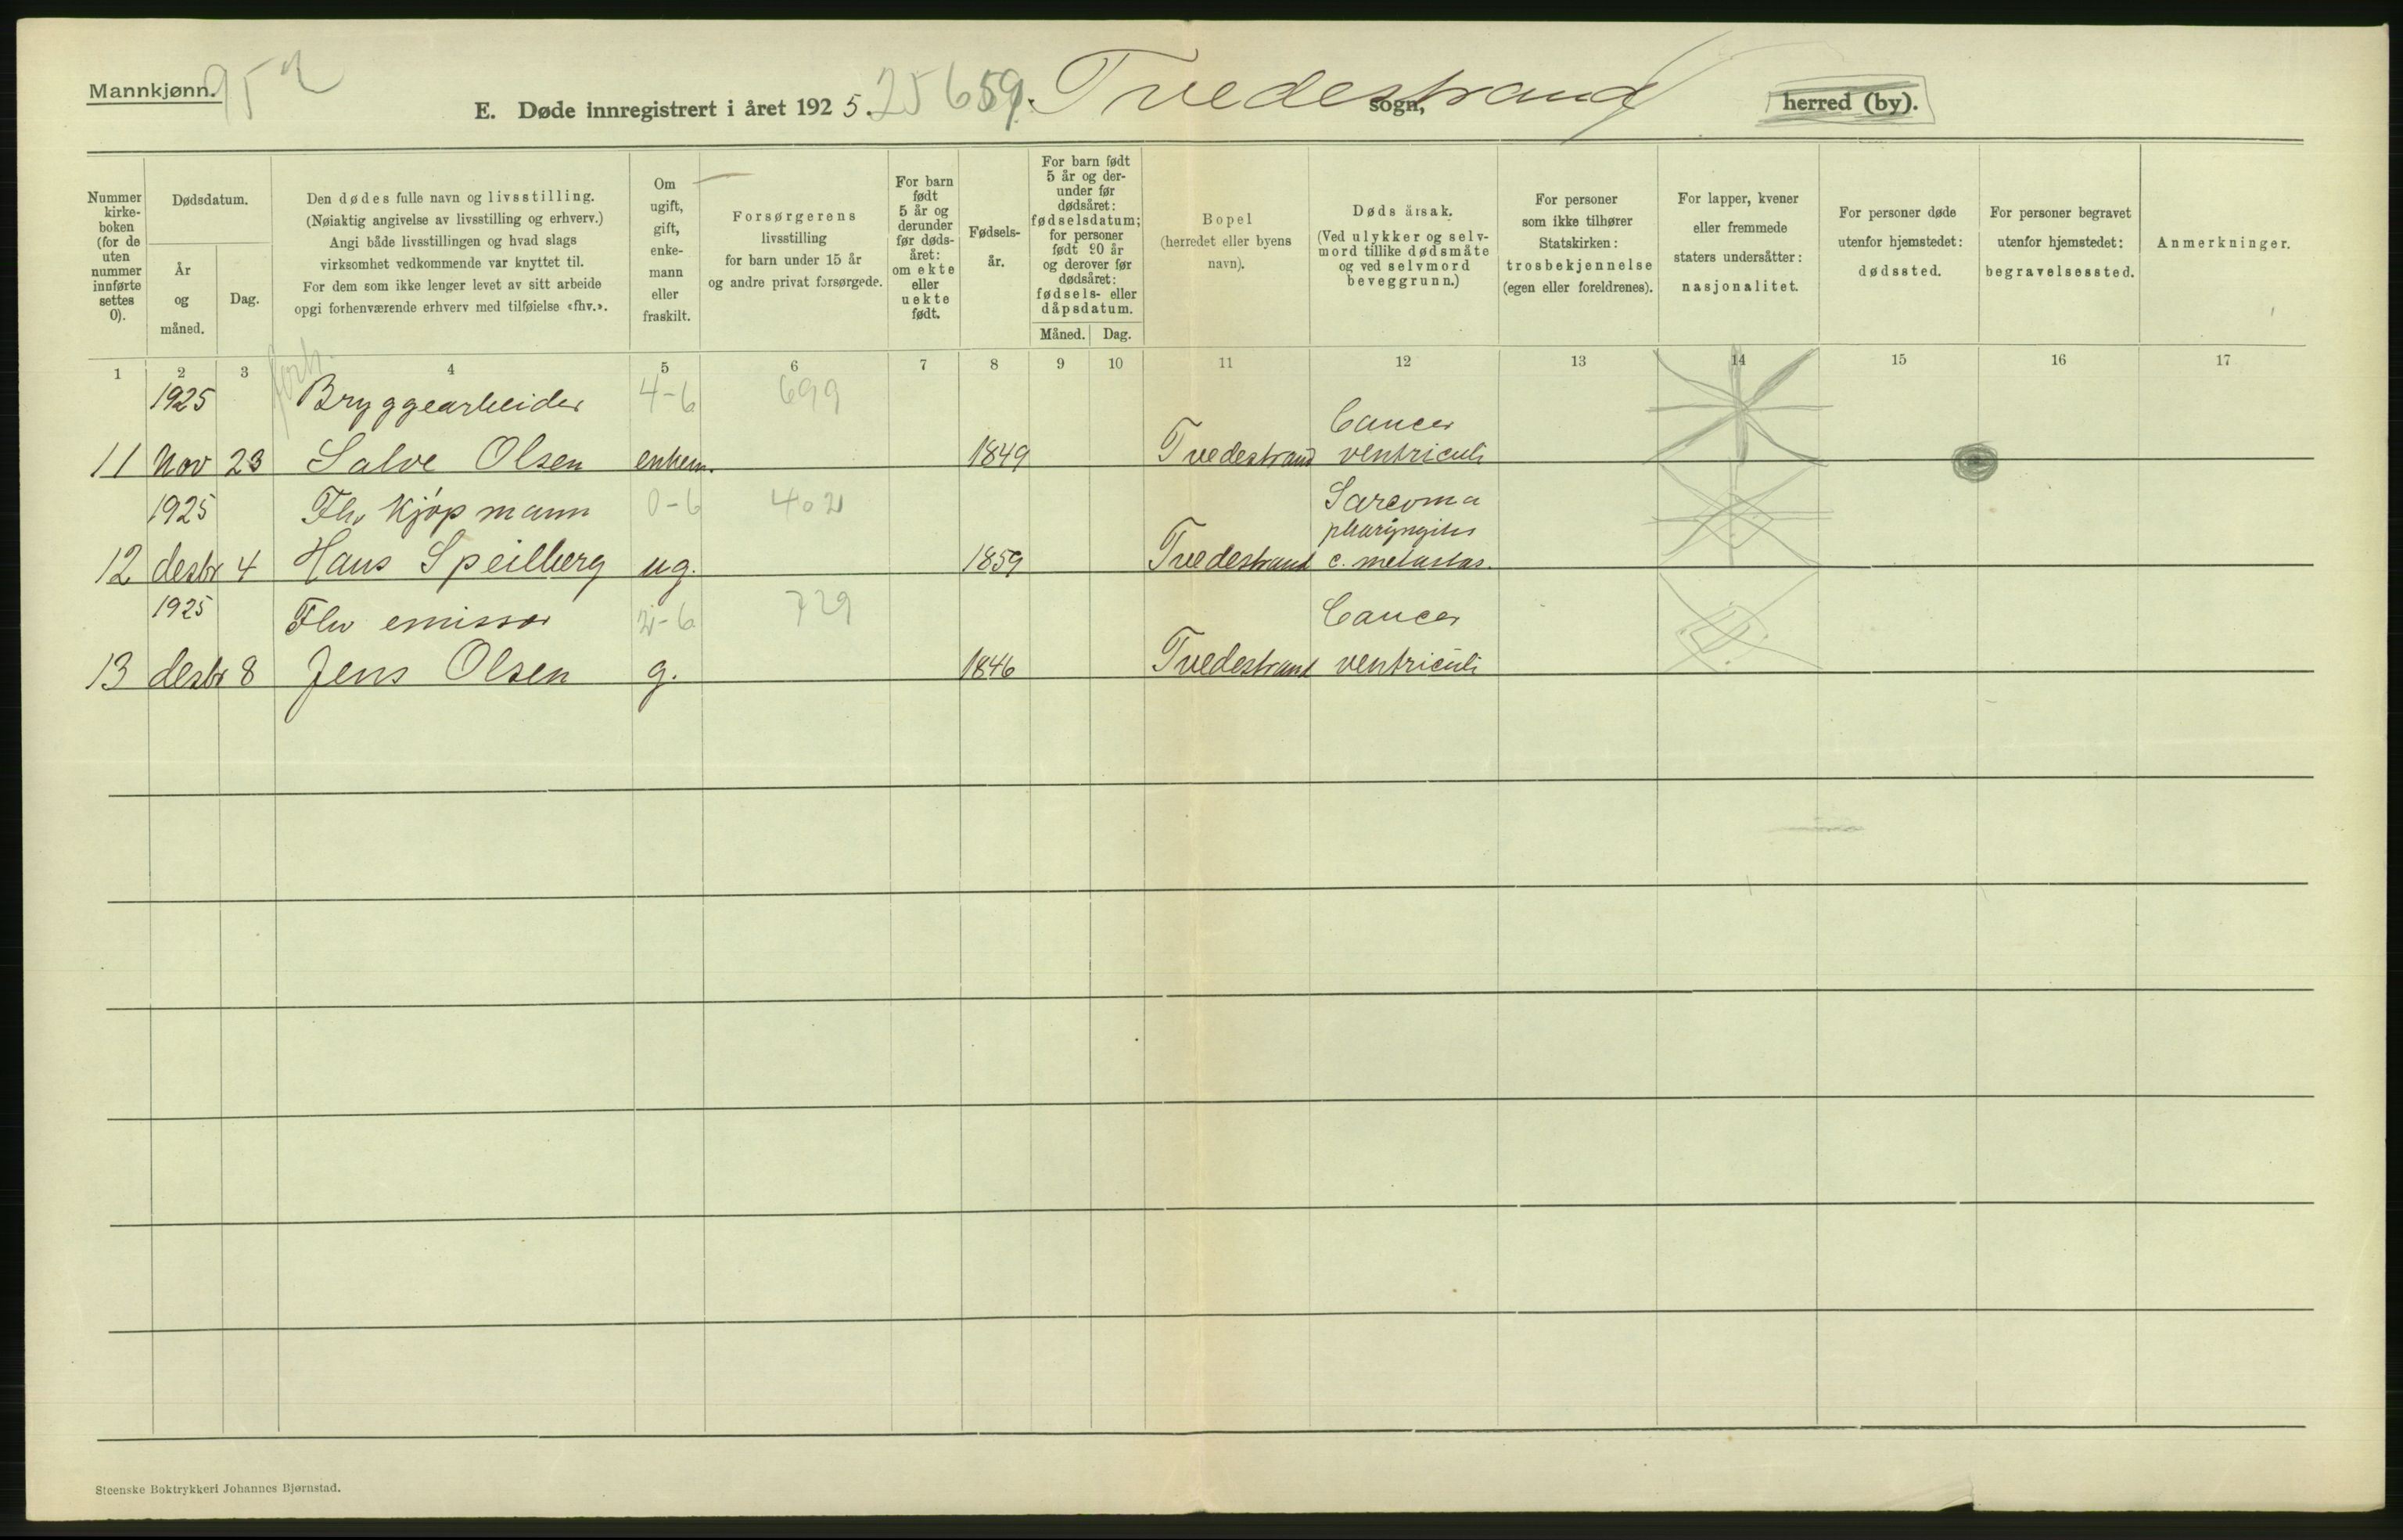 Mannkjønn. 952
E. Døde innregistrert i året 1925. 25659. Tvedestrand sogn, herred (by).
Nummer kirke-boken (for de uten nummer innførte settes 0).
Dødsdatum.
År og måned.
Dag.
Den dødes fulle navn og livsstilling.
(Nøiaktig angivelse av livsstilling og erhverv.)
Angi både livsstillingen og hvad slags
virksomhet vedkommende var knyttet til.
For dem som ikke lenger levet av sitt arbeide
opgi forhenværende erhverv med tilføielse «fhv.».
Om
ugift,
gift,
enke-
mann
eller
fraskilt.
Forsørgerens
livsstilling
for barn under 15 år
og andre privat forsørgede.
For barn
født
5 år og
derunder
før døds-
året:
om ekte
eller
uekte
født.
Fødsels-
år.
For barn født
5 år og der-
under før
dødsåret:
fødselsdatum;
for personer
født 90 år
og derover før
dødsåret:
fødsels- eller
dåpsdatum.
Måned. Dag.
Bopel
(herredet eller byens
navn).
Dødsårsak.
(Ved ulykker og selv-
mord tillike dødsmåte
og ved selvmord
beveggrunn.)
For personer
som ikke tilhører
Statskirken:
trosbekjennelse
(egen eller foreldrenes).
For lapper, kvener
eller fremmede
staters undersåtter:
nasjonalitet.
For personer døde
utenfor hjemstedet:
dødssted.
For personer begravet
utenfor hjemstedet:
begravelsessted.
Anmerkninger.
1 2 3 4 5 6 7 8 9 10 11 12 13 14 15 16 17
forh.
1925 Bryggearbeider 4-6 699 Cancer
11 Nov 23 Salve Olsen enkem. 1849 Tvedestrand ventriculi
1925 Fhv kjøpmann 0-6 402 Sarcoma
pharyngitis
12 desbr 4 Hans Speilberg ug. 1859 Tvedestrand c. metastas.
1925 Fhv emissær 2-6 729 Cancer
13 desbr 8 Jens Olsen g. 1846 Tvedestrand ventriculi
Steenske Boktrykkeri Johannes Bjørnstad.